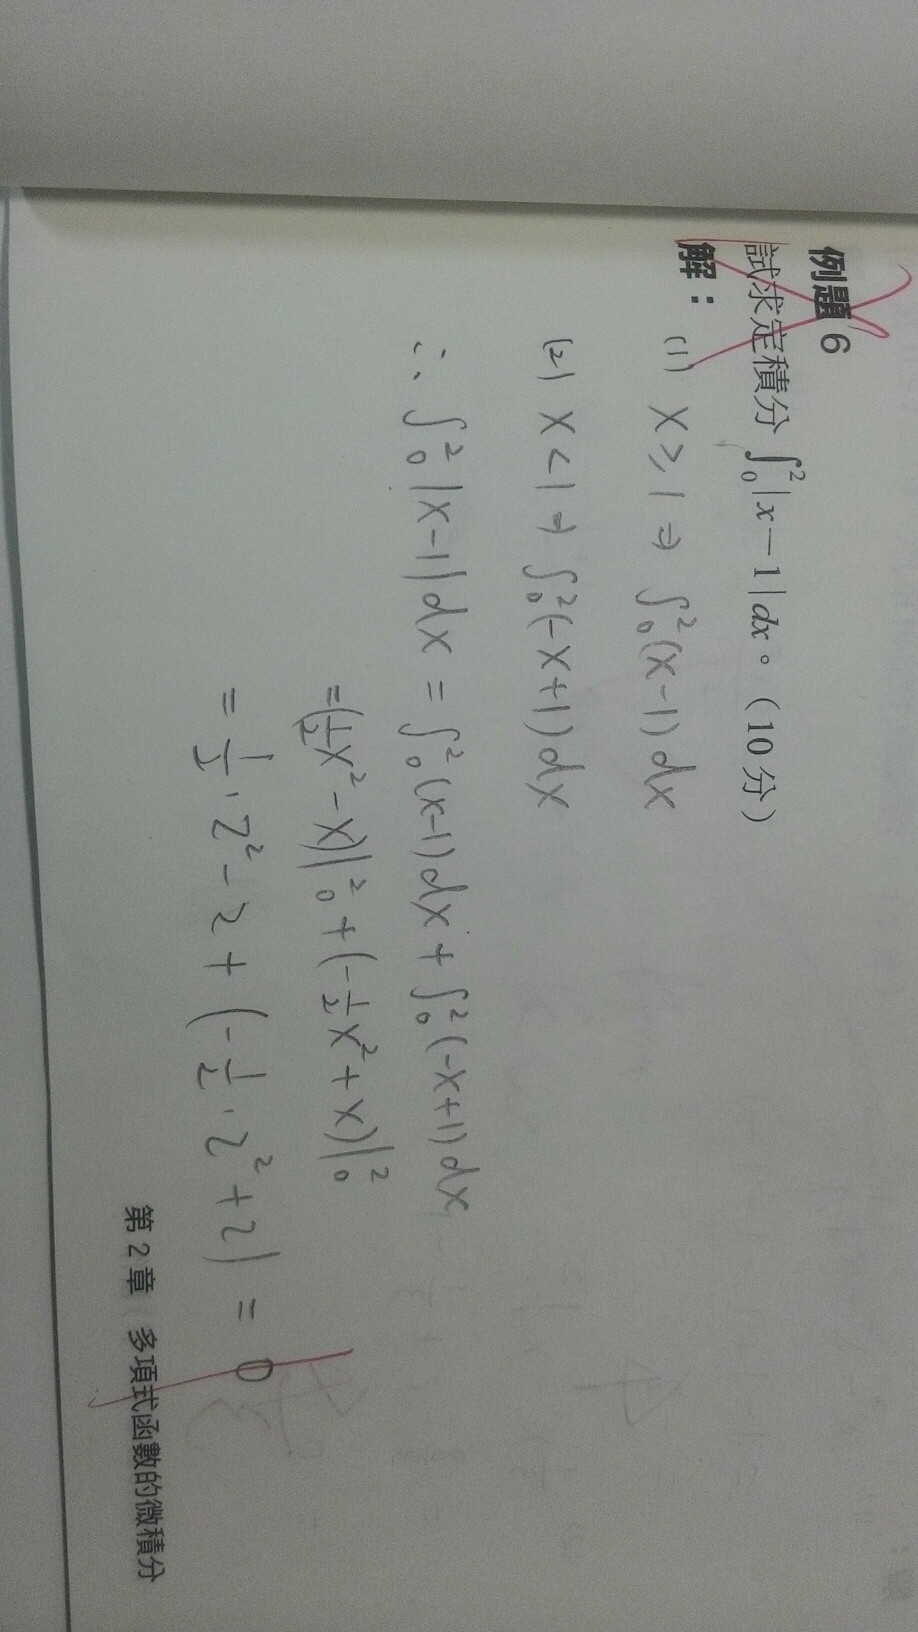 例題 6
試求定積分 ∫₀²|x－1|dx。（10 分）
解：(1) x ≥ 1 ⇒ ∫₀²(x-1)dx
(2) x < 1 ⇒ ∫₀²(-x+1)dx
∴ ∫₀²|x-1|dx = ∫₀²(x-1)dx + ∫₀²(-x+1)dx
= (½x² - x)|₀² + (-½x² + x)|₀²
= ½·2² - 2 + (-½·2² + 2) = 0
第 2 章 多項式函數的微積分